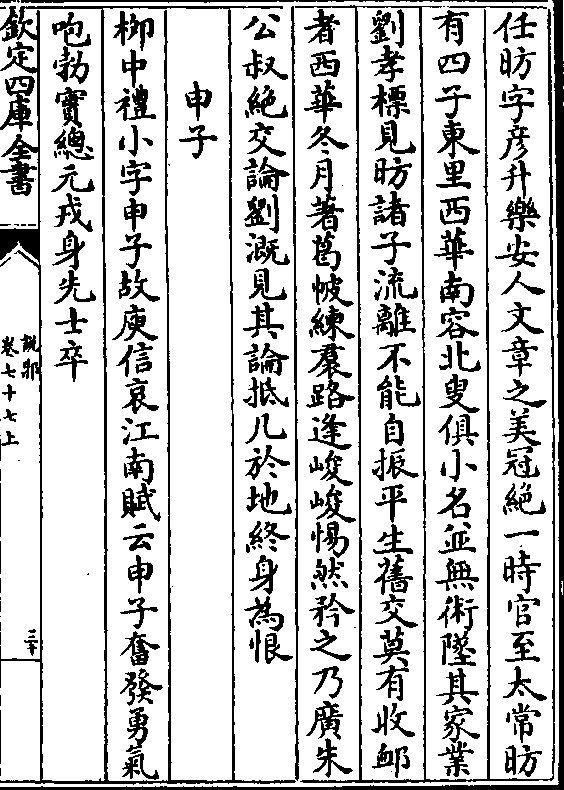 任昉字彦升樂安人文章之美冠絶一時官至太常昉
有四子東里西華南容北叟俱小名並無術墜其家業
劉孝標見昉諸子流離不能自振平生舊交莫有收䘏
者西華冬月著葛帔練裙路逢峻峻惕然矜之乃廣朱
公叔絶交論劉溉見其論抵几於地終身為恨
申子
栁中禮小字申子故庾信哀江南賦云申子奮發勇氣
咆勃實總元戎身先士卒
欽定四庫全書
説郛
卷七十七上
三十